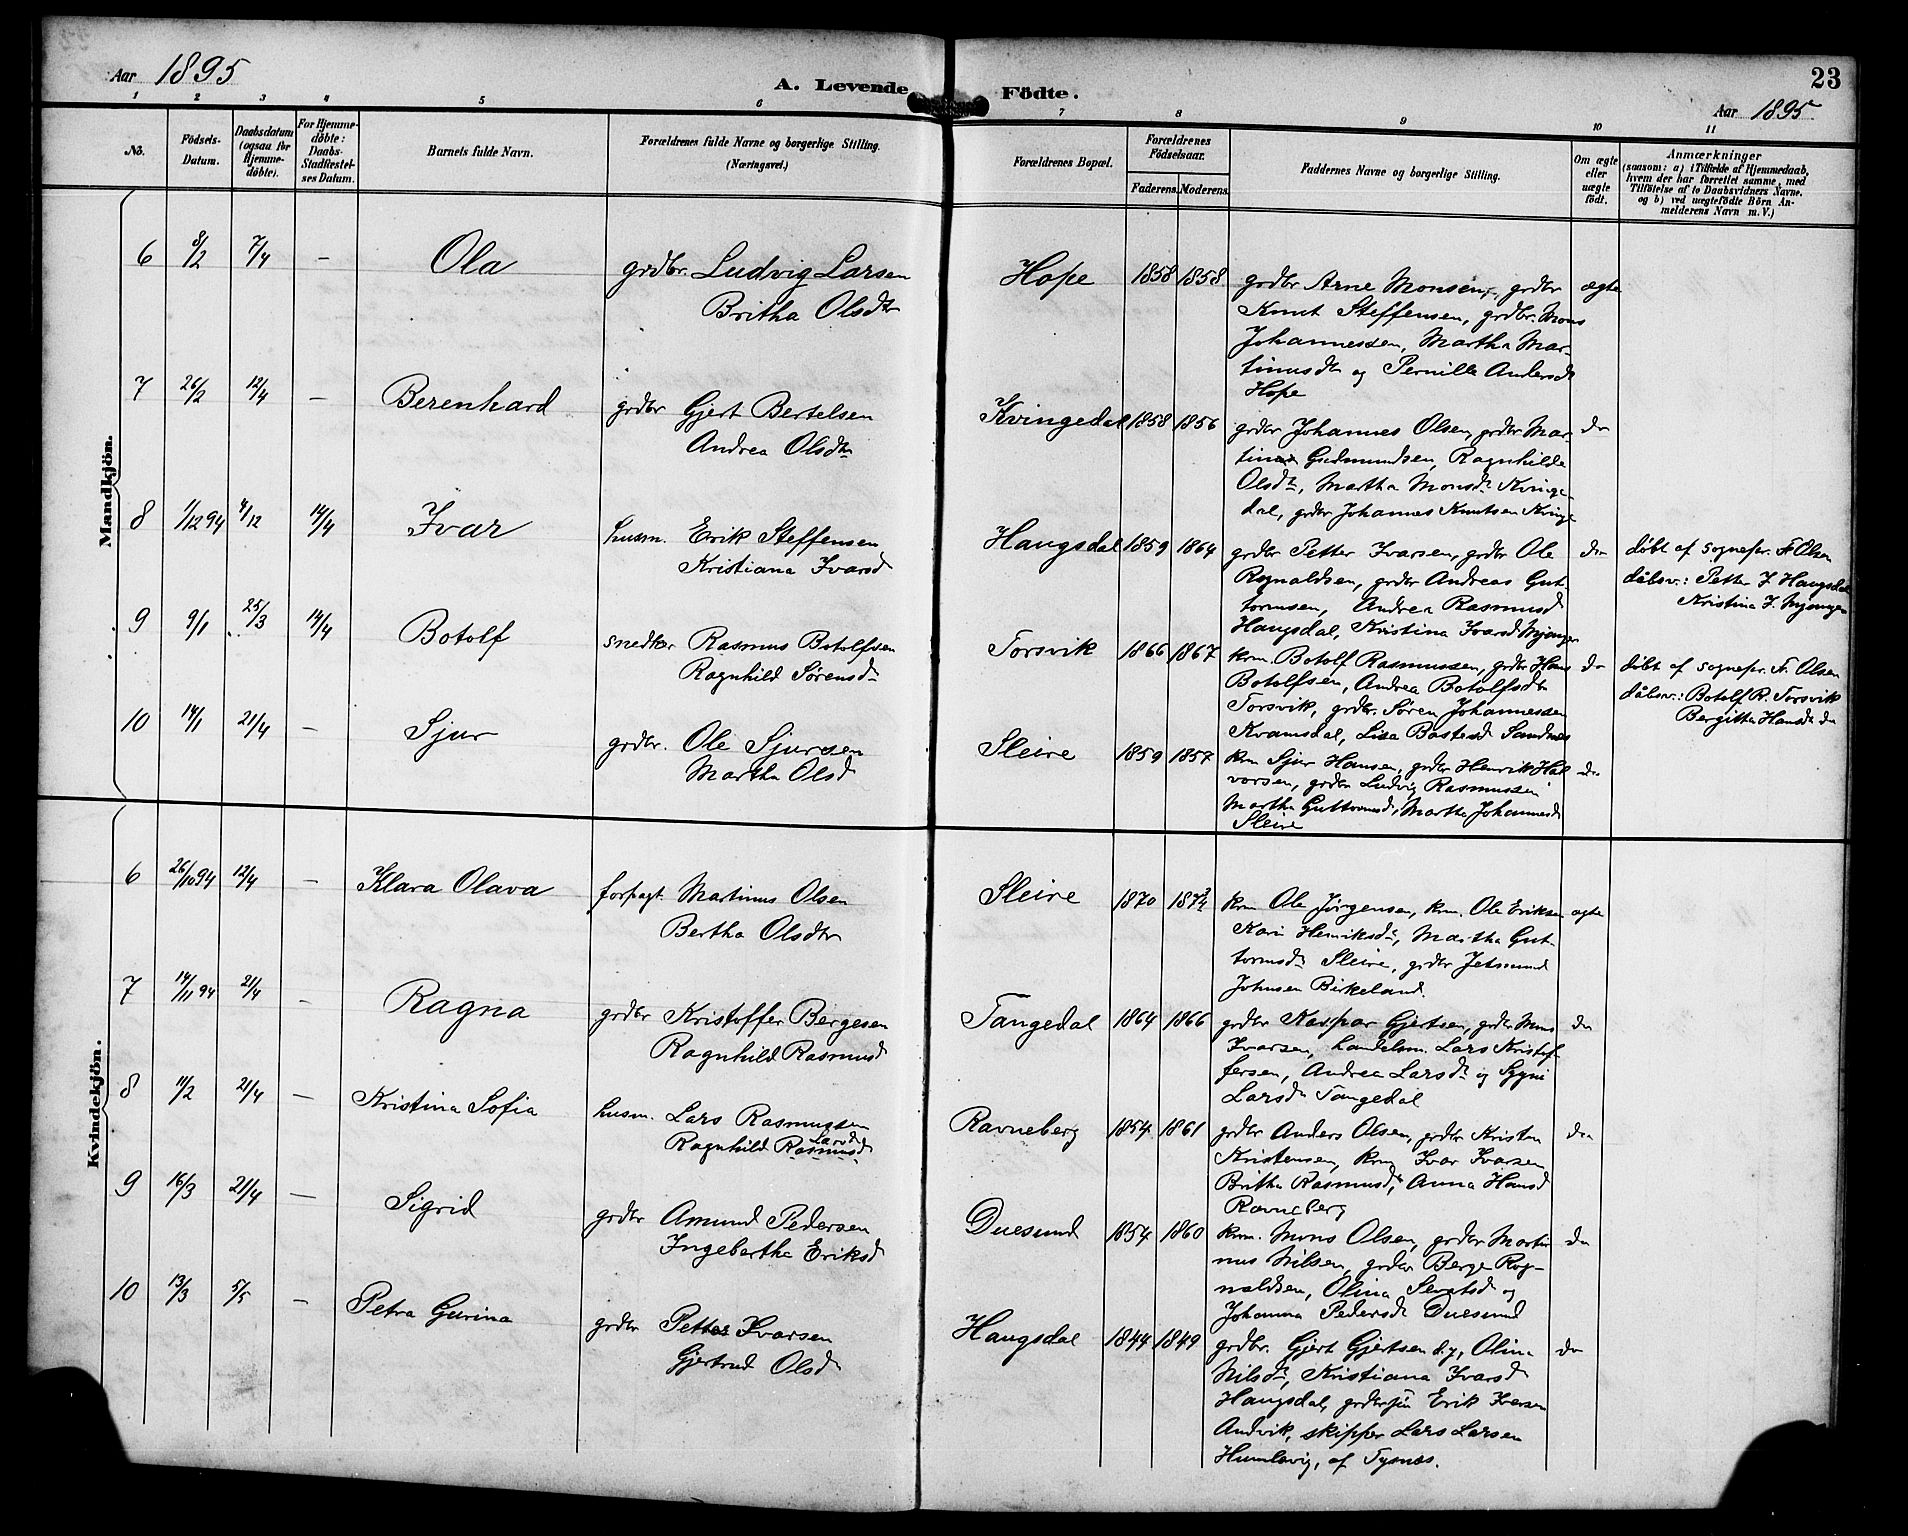 Aar 1895
A. Levende Födte.
23
Aar 1895
1 2 3 4 5 6 7 8 9 10 11
No.
Födsels-
Datum.
Daabsdatum
(ogsaa for
Hjemme-
döbte).
For Hjemme-
döbte:
Daabs-
Stadfæstel-
ses Datum.
Barnets fulde Navn.
Forældrenes fulde Navne og borgerlige Stilling.
(Næringsvei.)
Forældrenes Bopæl.
Forældrenes
Födselsaar.
Faderens. Moderens.
Faddernes Navne og borgerlige Stilling.
Om ægte
eller
uægte
født.
Anmærkninger
(saasom: a) i Tilfælde af Hjemmedaab,
hvem der har forrettet samme, med
Tilföielse af to Daabsvidners Navne,
og b) ved uægtefödte Börn An-
melderens Navn m. V.)
Mandkjön.
6 8/2 7/4 – Ola
grdbr. Ludvig Larsen
Britha Olsdtr
Hope 1858 1858
grdbr Arne Monsen, grdbr
Knut Steffensen, grdbr. Mons
Johannessen, Martha Mar-
tinusdt og Pernille Andersdt
Hope
ægte
7 26/2 12/4 – Berenhard
grdbr Gjert Bertelsen
Andrea Olsdtr
Kvingedal 1858 1856
grdbr Johannes Olsen, grdbr Mar-
tinus Gudmundsen, Ragnhilde
Olsdt, Martha Monsdt Kvinge-
dal, grdbr Johannes Knutsen Kvinge
do
8 1/12 94 4/12 14/4 Ivar
husm. Erik Steffensen
Kristiana Ivarsd
Haugsdal 1859 1864
grdbr Petter Ivarsen, grdbr Ole
Rognaldsen, grdbr Andreas Gut-
tormsen, Andrea Rasmusd
Haugsdal, Kristina Ivarsd Mjanger
do
døbt af sognepr. Fr. Olsen
dåbsv.: Petter I. Haugsdal
Kristina I. Mjanger
9 9/1 25/3 14/4 Botolf
snedker Rasmus Botolfsen
Ragnhild Sørensdt
Torsvik 1866 1867
krm. Botolf Rasmussen, grdbr Hans
Botolfsen, Andrea Botolfsdtr
Torsvik, grdbr. Søren Johannessen
Kvamsdal, Lisa Bastesd Sandnes
do
døbt af sognepr. Fr. Olsen
dåbsv.: Botolf R. Torsvik
Bergitha Hansdt do
10 14/1 21/4 – Sjur
grdbr. Ole Sjursen
Martha Olsd
Sleire 1859 1857
krm Sjur Hansen, grdbr Henrik Hal-
vorsen, grdbr Ludvig Rasmussen
Martha Guttormsd, Martha Johannesd
Sleire
do
Kvindekjön.
6 26/10 94 12/4 – Klara Olava
forpagt. Martinus Olsen
Bertha Olsdtr
Sleire 1870
krm Ole Jørgensen, krm. Ole Eriksen
Kari Henriksdt, Martha Gut-
tormsdt Sleire, grdbr Jetmund
Johnsen Birkeland.
ægte
7 14/11 94 21/4 – Ragna
grdbr Kristoffer Bergesen
Ragnhild Rasmusd
Tangedal 1864 1866
grdbr Kaspar Gjertsen, grdbr Mons
Ivarsen, handelsm. Lars Kristof-
fersen, Andrea Larsdt og Sygni
Larsdt Tangedal
do
8 11/2 21/4 – Kristina Sofia
husm. Lars Rasmussen
Larsd
Ragnhild Rasmusd
Ravneberg 1854 1861
grdbr Anders Olsen, grdbr Kristen
Kristensen, krm Ivar Ivarsen
Britha Rasmusd, Anna Hansd
Ravneberg
do
9 16/3 21/4 – Sigrid
grdbr Amund Pedersen
Ingebertha Eriksd
Duesund 1854 1860
krm. Mons Olsen, grdbr Marti-
nus Nilsen, grdbr Berge Rog-
naldsen, Olina Sevatsd og
Johanna Pedersdt Duesund
do
10 13/3 5/5 – Petra Gurina
grdbr Petter Ivarsen
Gjertrud Olsdt
Haugsdal 1844 1849
grdbr. Gjert Gjertsen d.y., Olina
Nilsdt, Kristiana Ivarsd
Haugsdal, Erik Iversen
Andvik, skipper Lars Larsen
Humlevig, af Tysnæs.
do